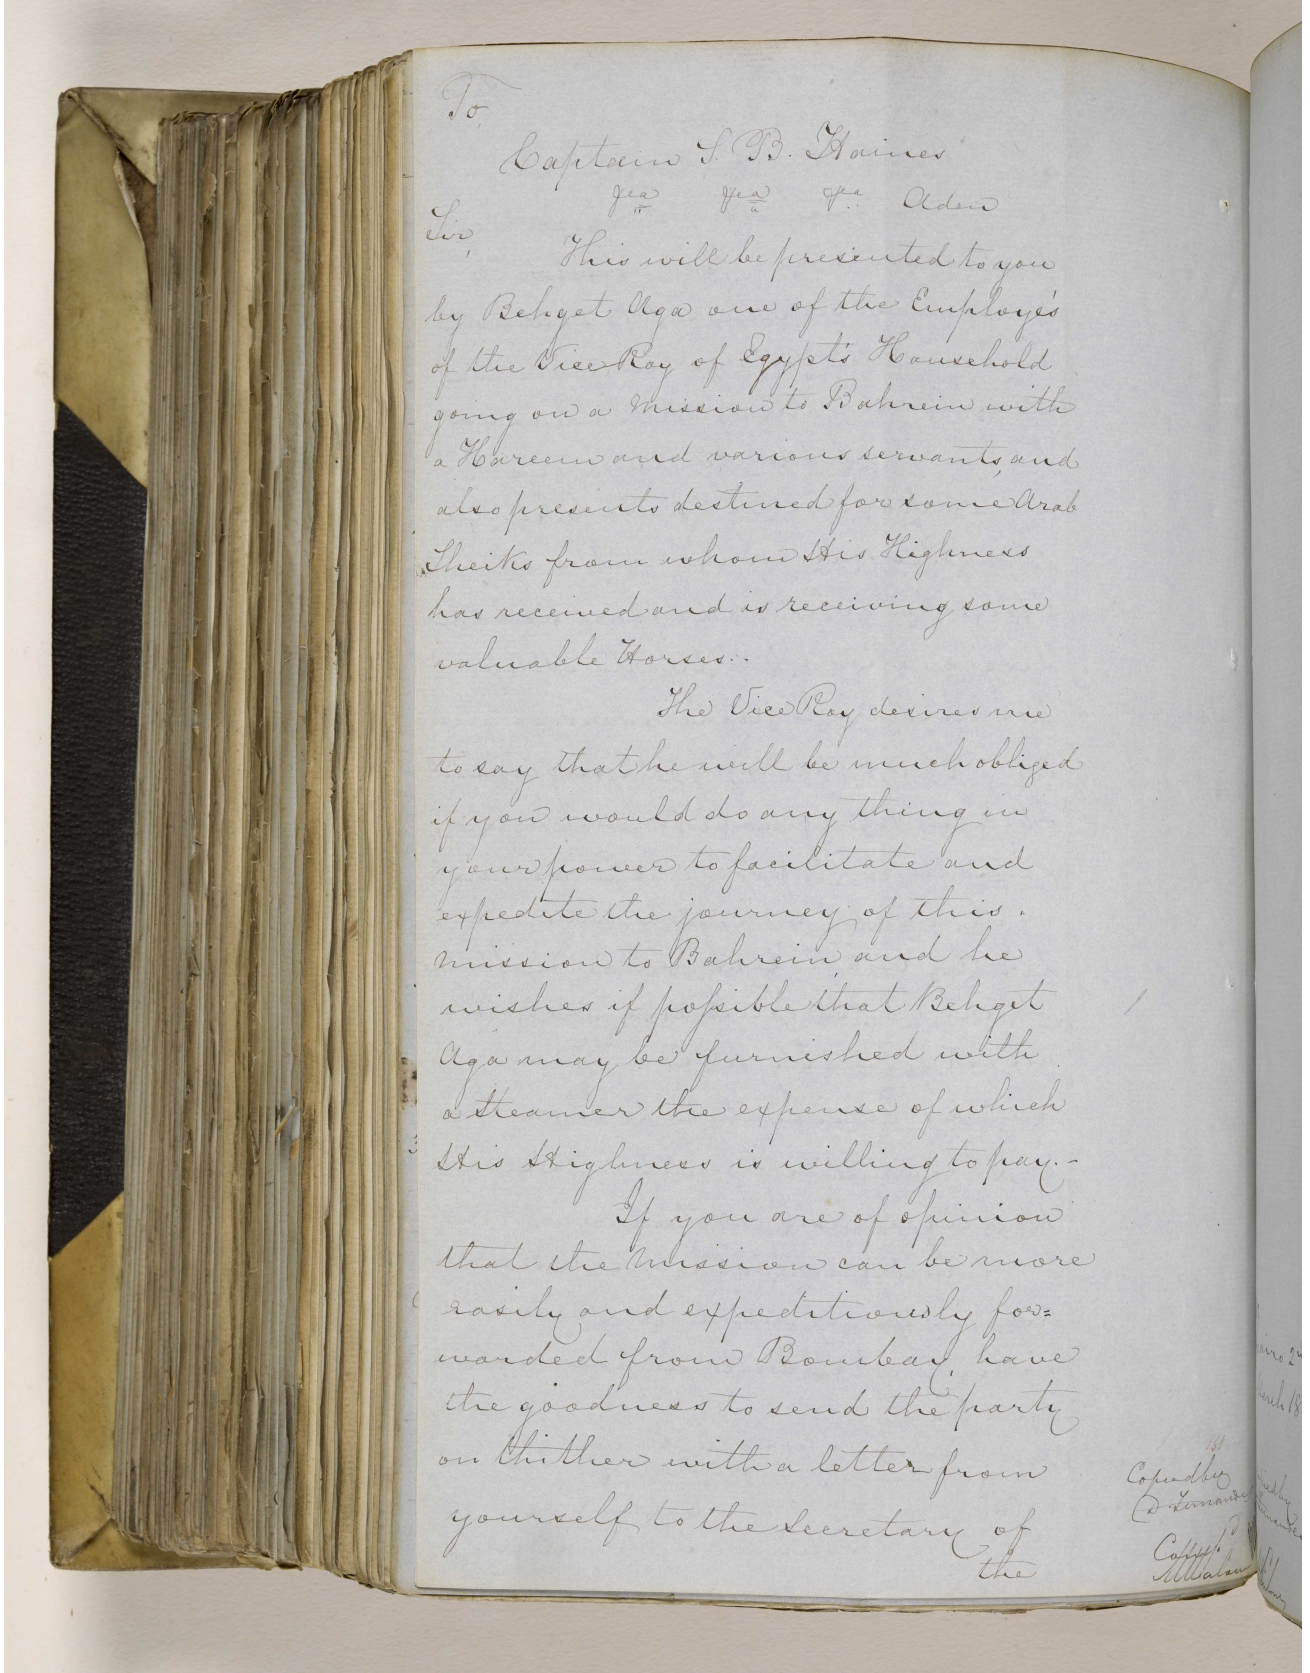 To,
Captain S. B. Haines
&ca &ca &ca Aden
Sir,
This will be presented to you
by Behget Aga one of the Employé's
of the Vice Roy of Egypt's Household
going on a Mission to Bahrein with
a Hareem and various servants, and
also presents destined for some Arab
Sheiks from whom His Highness
has received and is receiving some
valuable Horses..
The Vice Roy desires me
to say that he will be much obliged
if you would do any thing in
your power to facilitate and
expedite the journey of this.
Mission to Bahrein, and he
wishes if possible that Behget
Aga may be furnished with
a Steamer the expense of which
His Highness is willing to pay.-
If you are of opinion
that the Mission can be more
easily and expeditiously for=
warded from Bombay, have
the goodness to send the party
on thither with a letter from
yourself to the Secretary of
the
Copied by